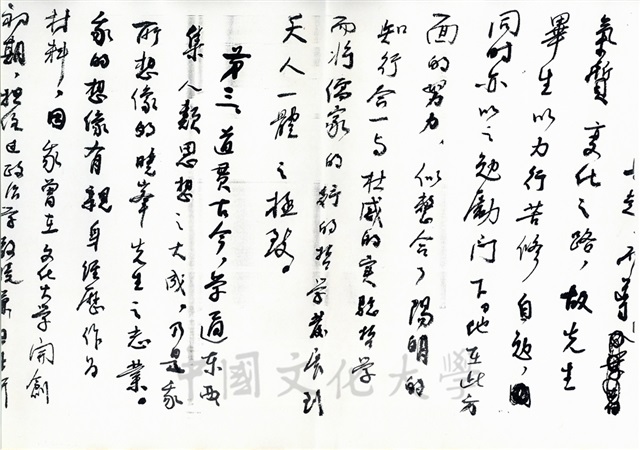 氣質變化之路，故先生
畢生以力行苦修自勉，
同時亦以之勉勵門下。他在此方
面的努力，似整合了陽明的
知行合一与杜威的實驗哲学
而將儒家的行的哲学發展到
天人一體之極致。
第三、道貫古今，学通东西
集人類思想之大成，乃是我
所想像的曉峯先生之志業。
我的想像有親身經歷作为
材料，因我曾在文化大学開創
初期，担任过政治学
中國文化大學